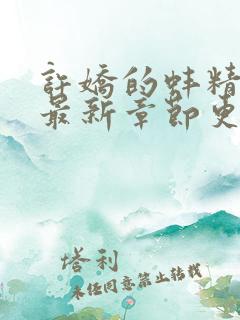 許嬌的蚌精
最新章節更
塔利
未经同意禁止转载